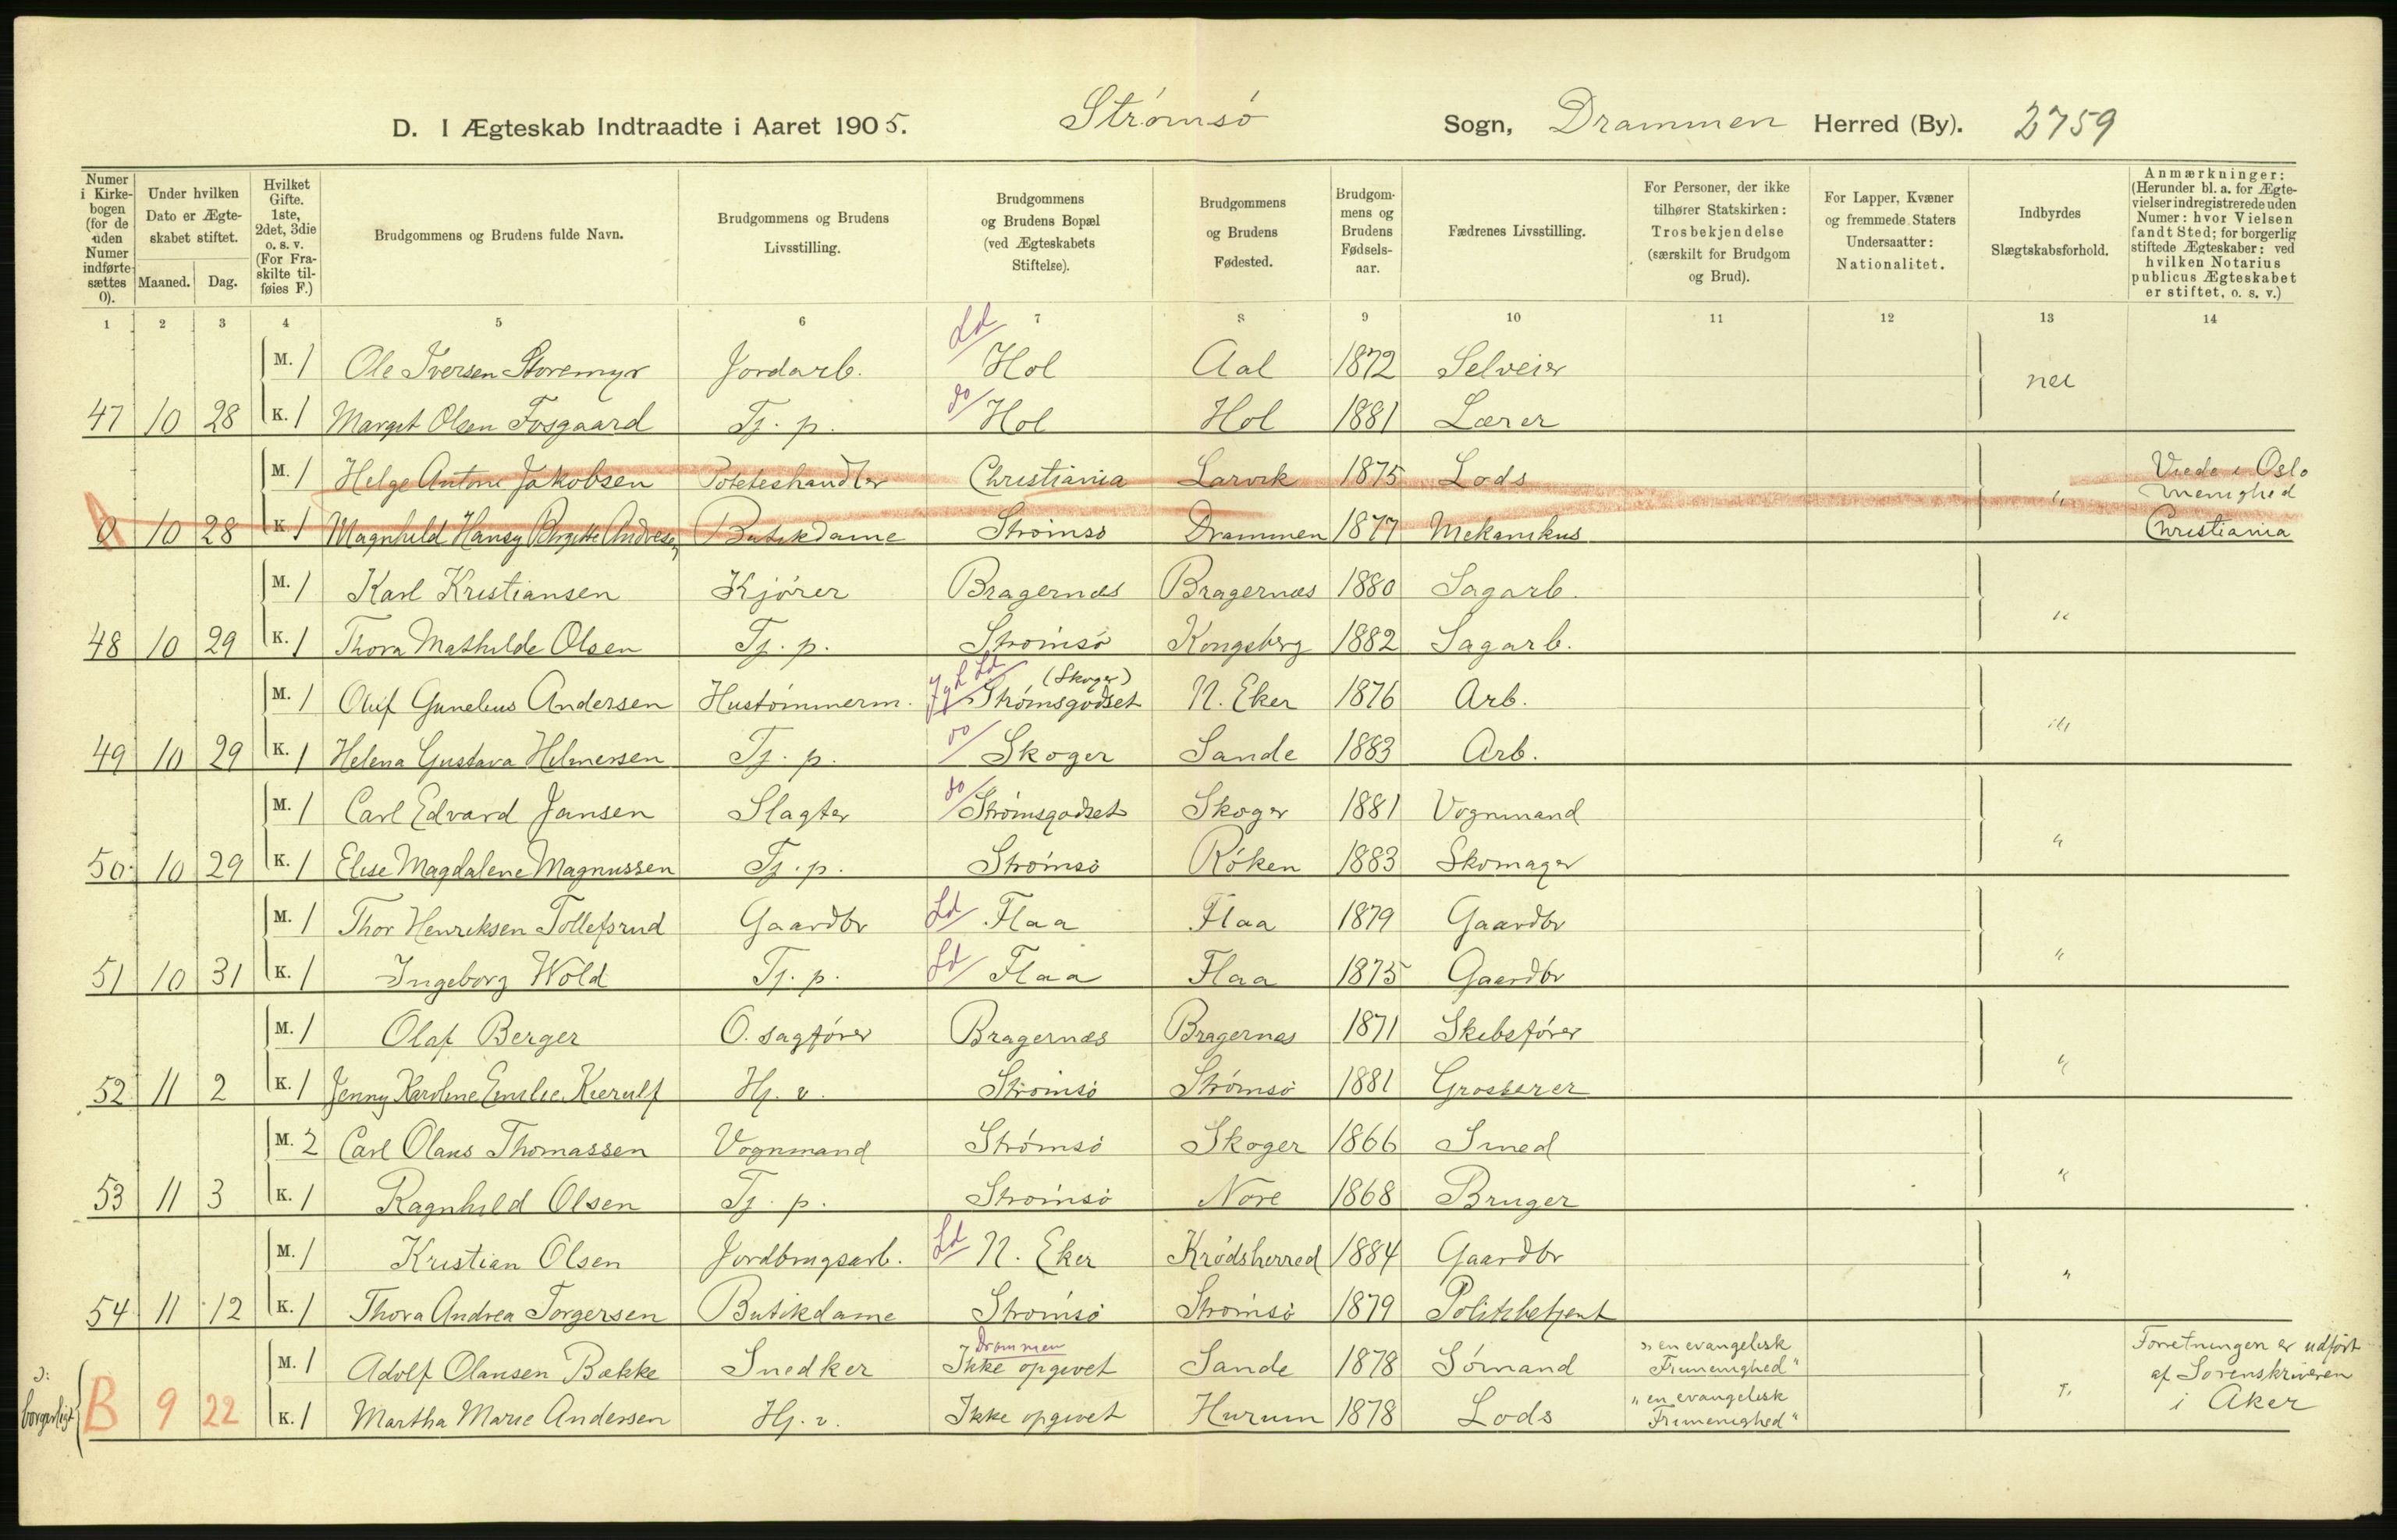 D. I Ægteskab Indtraadte i Aaret 1905. Strømsø Sogn, Drammen Herred (By). 2759
Numer i Kirkebogen (for de uden Numer indførte sættes 0). | Under hvilken Dato er Ægteskabet stiftet. Maaned. Dag. | Hvilket Gifte. 1ste, 2det, 3die o. s. v. (For Fraskilte tilføies F.) | Brudgommens og Brudens fulde Navn. | Brudgommens og Brudens Livsstilling. | Brudgommens og Brudens Bopæl (ved Ægteskabets Stiftelse). | Brudgommens og Brudens Fødested. | Brudgommens og Brudens Fødselsaar. | Fædrenes Livsstilling. | For Personer, der ikke tilhører Statskirken: Trosbekjendelse (særskilt for Brudgom og Brud). | For Lapper, Kvæner og fremmede Staters Undersaatter: Nationalitet. | Indbyrdes Slægtskabsforhold. | Anmærkninger: (Herunder bl. a. for Ægtevielser indregistrerede uden Numer: hvor Vielsen fandt Sted; for borgerlig stiftede Ægteskaber: ved hvilken Notarius publicus Ægteskabet er stiftet, o. s. v.)
1 2 3 4 5 6 7 8 9 10 11 12 13 14
M. 1 Ole Iversen Storemyr Jordarb. Ld Hol Aal 1872 Selveier nei
47 10 28 K. 1 Margit Olsen Fosgaard Tj. p. do Hol Hol 1881 Lærer
M. 1 Helge Antoni Jakobsen Poteteshandler Christiania Larvik 1875 Lods " Viede i Oslo menighed
0 10 28 K. 1 Magnhild Hansy Birgitte Andresen Butikdame Strømsø Drammen 1877 Mekanikus Christiania
M. 1 Karl Kristiansen Kjører Bragernæs Bragernæs 1880 Sagarb. "
48 10 29 K. 1 Thora Mathilde Olsen Tj. p. Strømsø Kongsberg 1882 Sagarb.
M. 1 Oluf Gunelius Andersen Hustømmerm. Ld (Skoger) Strømsgodset N. Eker 1876 Arb. "
49 10 29 K. 1 Helena Gustava Helmersen Tj. p. do Skoger Sande 1883 Arb.
M. 1 Carl Edvard Jansen Slagter do Strømsgodset Skoger 1881 Vognmand "
50 10 29 K. 1 Elise Magdalene Magnussen Tj. p. Strømsø Røken 1883 Skomager
M. 1 Thor Henriksen Tollefsrud Gaardbr Ld Flaa Flaa 1879 Gaardbr "
51 10 31 K. 1 Ingeborg Wold Tj. p. Ld Flaa Flaa 1875 Gaardbr
M. 1 Olaf Berger O. sagfører Bragernæs Bragernæs 1871 Skibsfører "
52 11 2 K. 1 Jenny Karoline Emilie Kierulf Hj. v. Strømsø Strømsø 1881 Grosserer
M. 2 Carl Olaus Thomassen Vognmand Strømsø Skoger 1866 Smed "
53 11 3 K. 1 Ragnhild Olsen Tj. p. Strømsø Nore 1868 Bruger
M. 1 Kristian Olsen Jordbrugsarb. Ld N. Eker Krødsherred 1884 Gaardbr "
54 11 12 K. 1 Thora Andrea Torgersen Butikdame Strømsø Strømsø 1879 Politibetjent
M. 1 Adolf Olausen Bakke Snedker Drammen Ikke opgivet Sande 1878 Sømand "en evangelisk Frimenighed" " Forretningen er udført af Sorenskriveren
ɔ: borgerligt B 9 22 K. 1 Martha Marie Andersen Hj. v. Ikke opgivet Hurum 1878 Lods "en evangelisk Frimenighed" i Aker